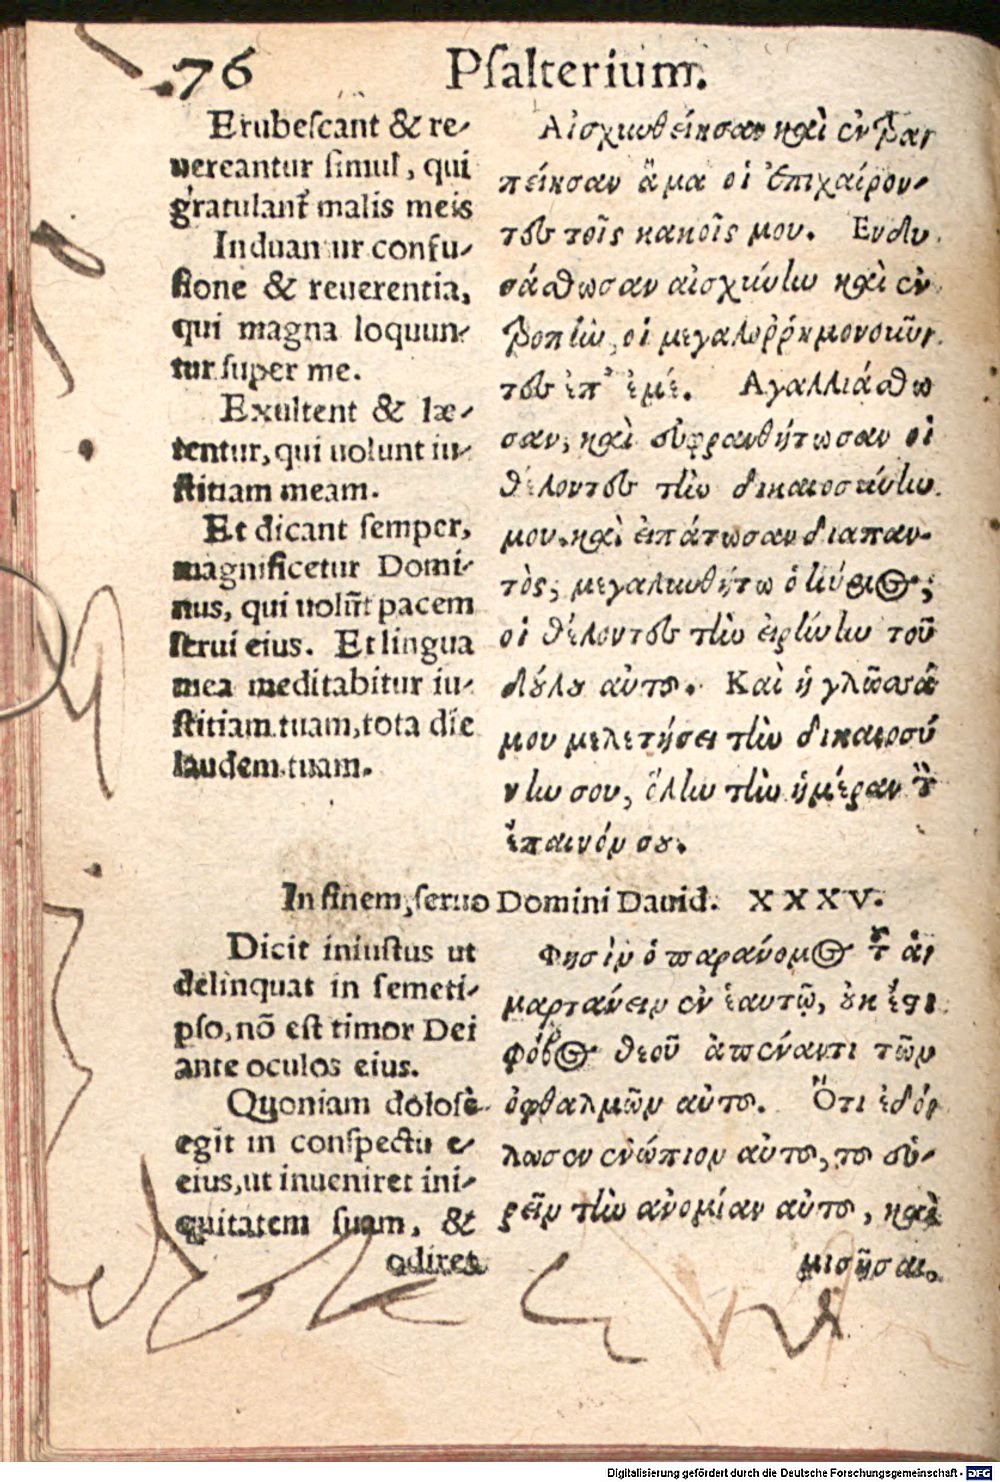 76 Psalterium.
Erubescant & re-
uereantur simul, qui
gratulant᷑ malis meis
Induantur confu-
sione & reuerentia,
qui magna loquun-
tur super me.
Exultent & læ-
tentur, qui uolunt iu-
stitiam meam.
Et dicant semper,
magnificetur Domi-
nus, qui uolũt pacem
serui eius. Et lingua
mea meditabitur iu-
stitiam tuam, tota die
laudem tuam.
Αἰσχυνθείησαν καὶ ἐντρα
πείησαν ἅμα οἱ ἐπιχαίρον-
τες τοῖς κακοῖς μου. Ἐνδυ
σάσθωσαν αἰσχύνην καὶ ἐν
τροπὴν, οἱ μεγαλοῤῥημονοῦν
τες ἐπ᾽ ἐμέ. Ἀγαλλιάσθω
σαν, καὶ εὐφρανθήτωσαν οἱ
θέλοντες τὴν δικαιοσύνην
μου. καὶ εἰπάτωσαν διαπαν-
τὸς, μεγαλυνθήτω ὁ κύριος,
οἱ θέλοντες τὴν εἰρήνην τοῦ
δούλου αὐτοῦ. Καὶ ἡ γλῶσσά
μου μελετήσει τὴν δικαιοσύ
νην σου, ὅλην τὴν ἡμέραν τὸν
ἔπαινόν σου.
In finem, seruo Domini Dauid. XXXV.
Dicit iniustus ut
delinquat in semeti-
pso, nõ est timor Dei
ante oculos eius.
Quoniam dolosè
egit in conspectu e-
eius, ut inueniret ini-
quitatem suam, &
odiret
Φησὶν ὁ παράνομος τοῦ ἁ
μαρτάνειν ἐν ἑαυτῷ, οὐκ ἔστι
φόβος θεοῦ ἀπέναντι τῶν
ὀφθαλμῶν αὐτοῦ. Ὅτι ἐδό
λωσεν ἐνώπιον αὐτοῦ, τοῦ εὑ-
ρεῖν τὴν ἀνομίαν αὐτοῦ, καὶ
μισῆσαι.
Digitalisierung gefördert durch die Deutsche Forschungsgemeinschaft - DFG